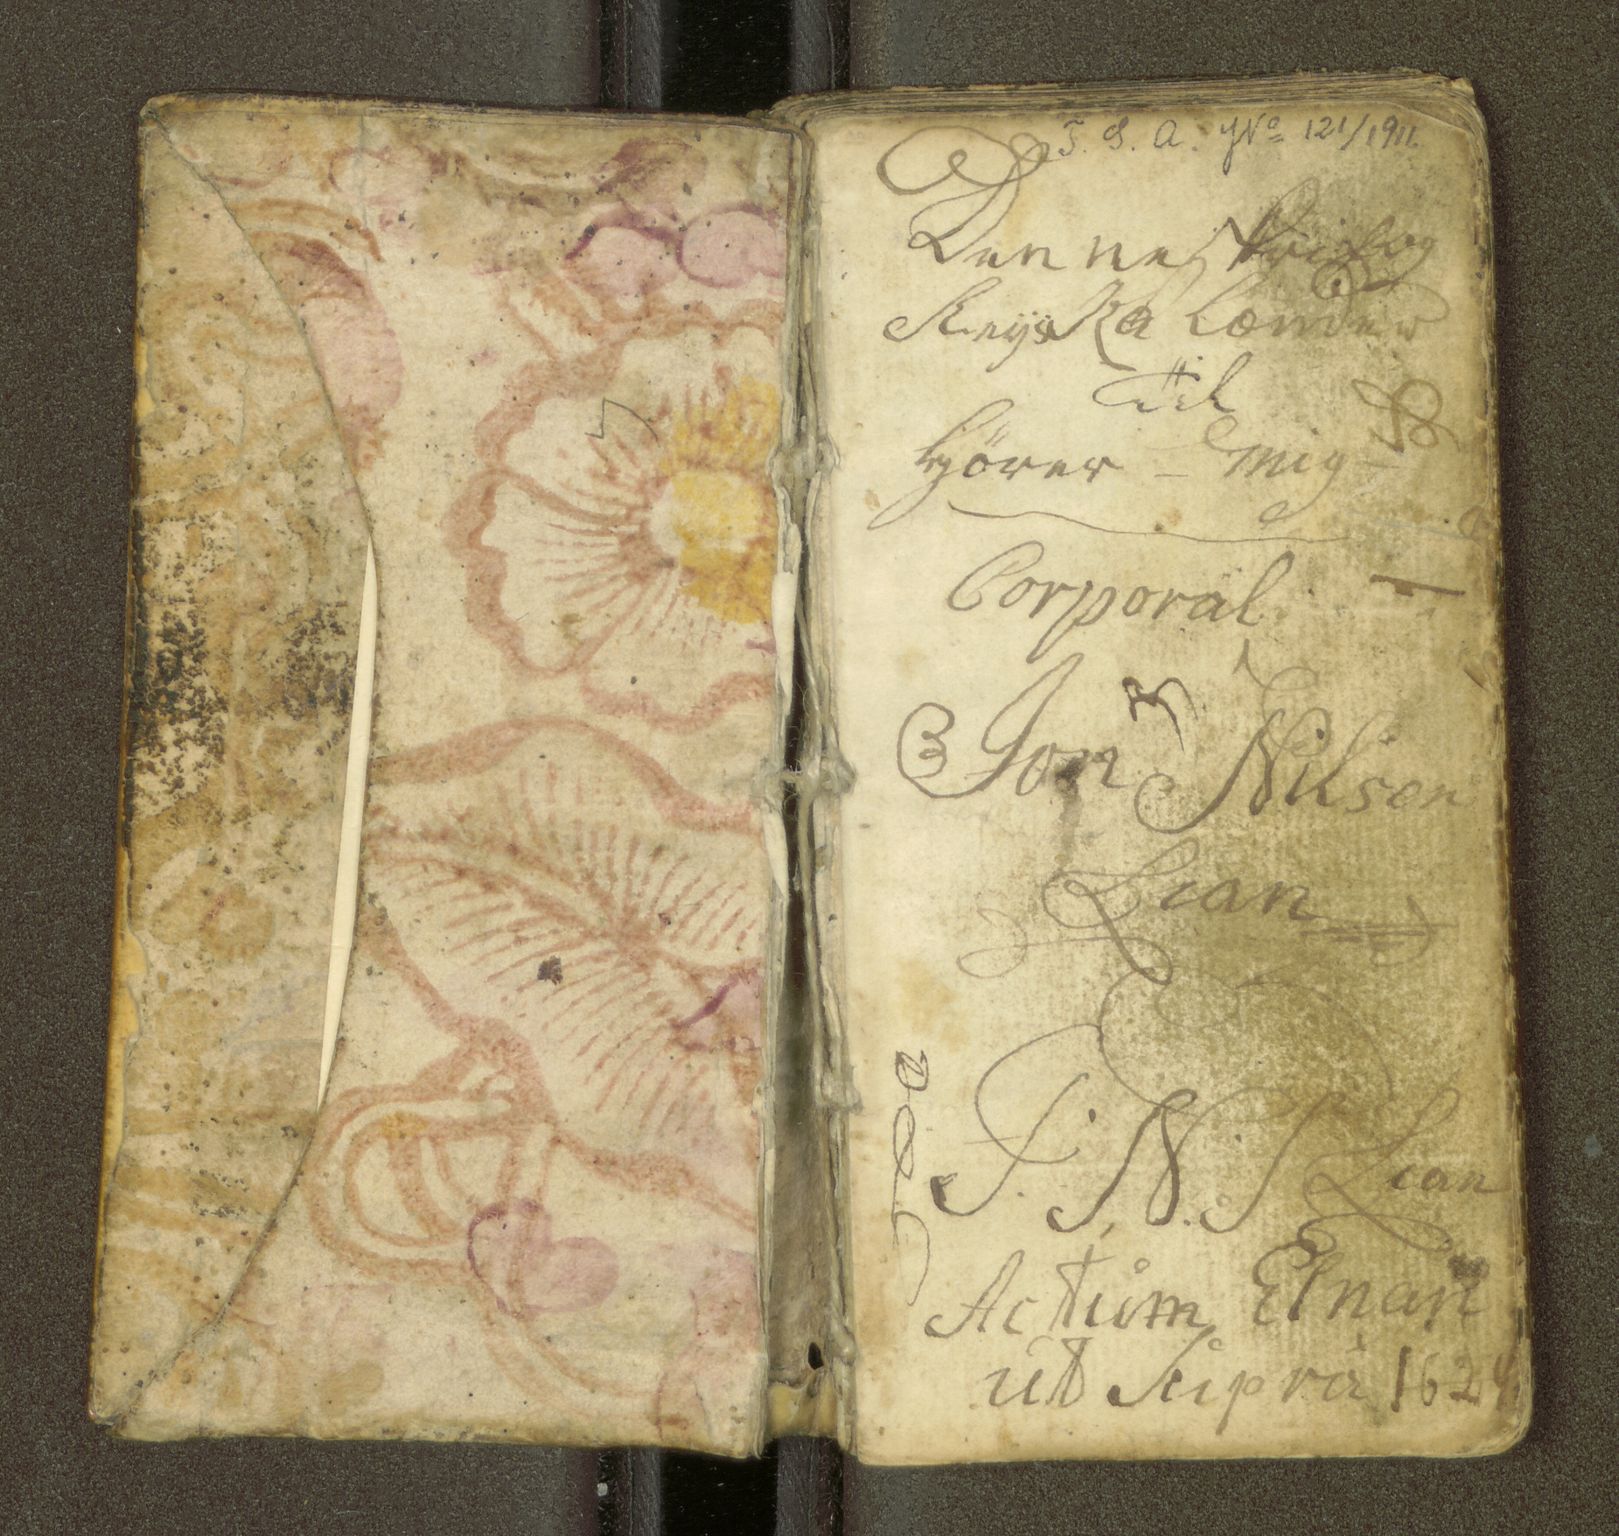 T. S. A. No 121/1911.
Denne
Reyska Lænder
til
hjörer - Mig -
Corporal
Jon Nilsen
Lian
J. N. S Lian
Actum Elnan
ut Supra 1624